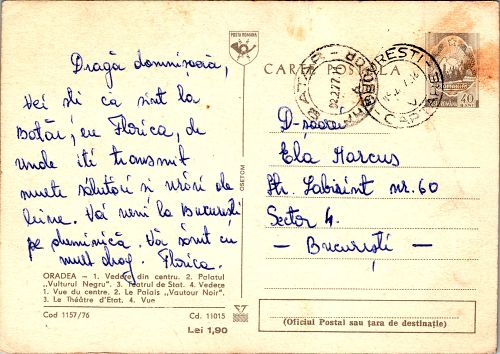 Dragă domnișoară,
Vei ști că sînt la
Botăr, cu Florica, de
unde iti transmit
multe sălutări si urări de
bine. Voi veni la București
pe duminică. Vă sărut cu
mult drag. Florica.
ORADEA — 1. Vedere din centru. 2. Palatul
„Vulturul Negru". 3. Teatrul de Stat. 4. Vedere
1. Vue du centre. 2. Le Palais „Vautour Noir".
3. Le Théâtre d'Etat. 4. Vue
Cod 1157/76
Cd. 11015
Lei 1,90
OSETCM
POSTA ROMANA
CARTE POSTALA
BUCURESTI
40
D-șoarei
Ela Marcus
Str. Labirint nr. 60
Sector 4.
— București —
(Oficiul Postal sau țara de destinație)